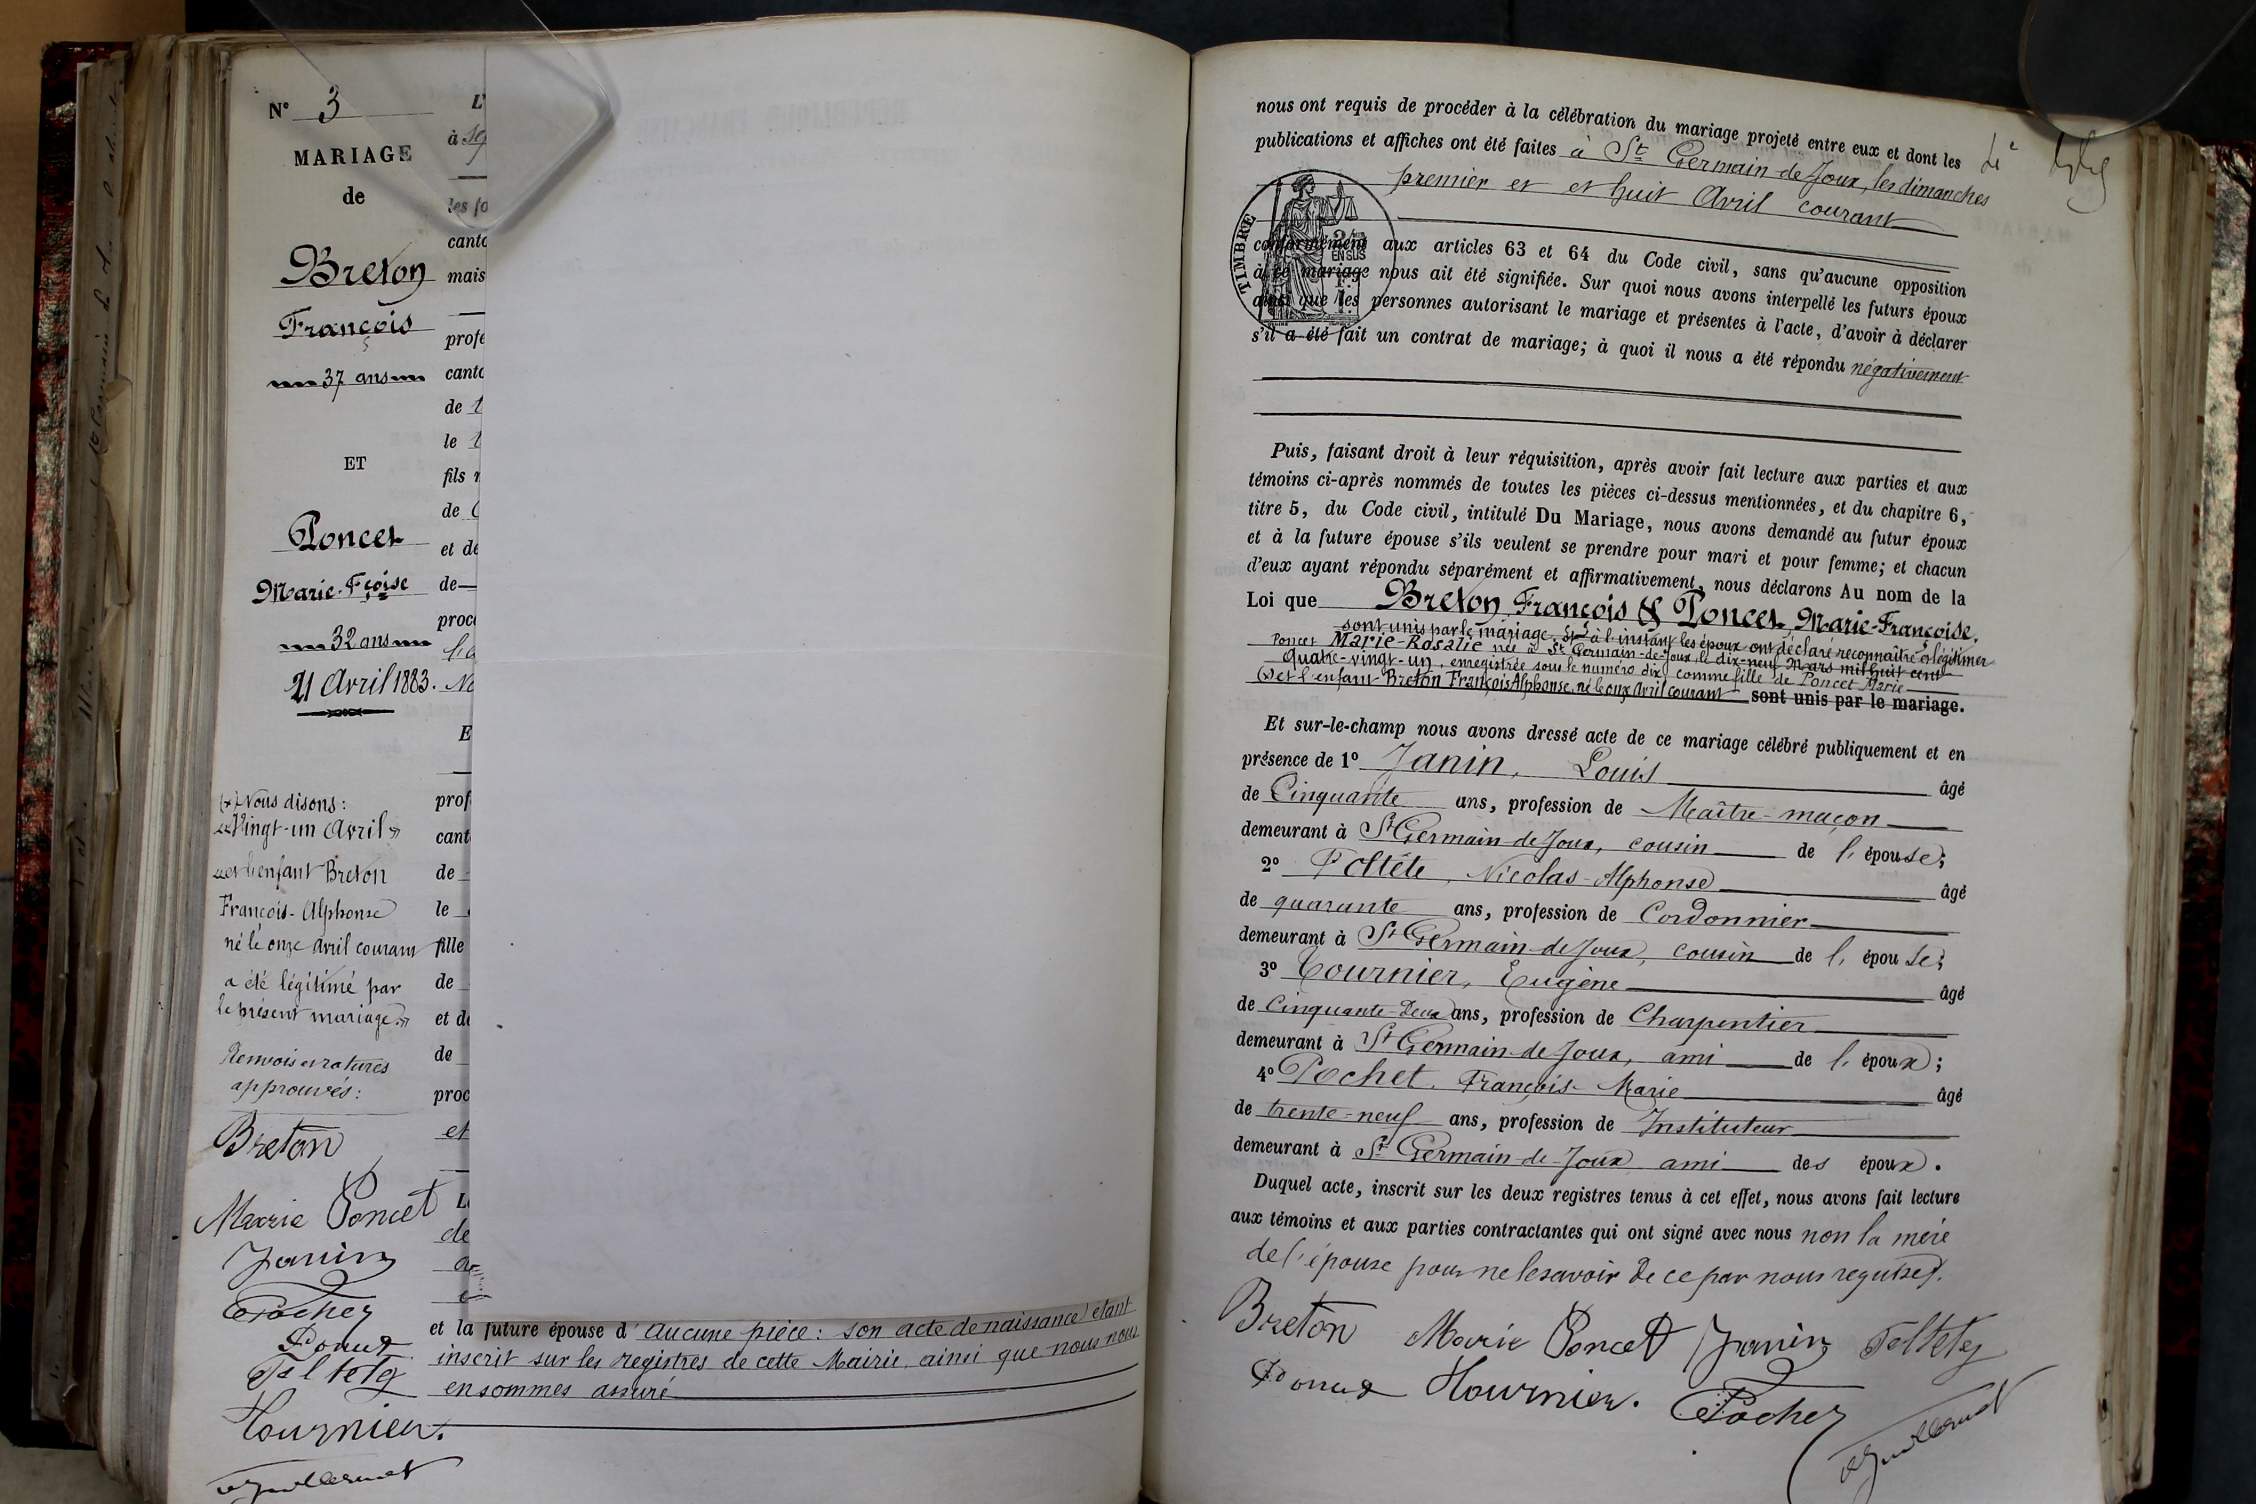 N° 3
MARIAGE
de
Breton
François
37 ans
ET
Poncet
Marie-Fçoise
32 ans
21 Avril 1883.
(x) Nous disons:
«Vingt-un Avril»
«et l'enfant Breton
François-Alphonse
né le onze avril courant
a été légitimé par
le présent mariage.»
Renvois et ratures
approuvés:
Breton
Marie Poncet
Janin
Pochet
Poncet
Feltétej
Tournier.
L'
à
les fo
canto
mais
profe
canto
de
le
fils
de
et de
de
proc
E
prof
cant
de
le
fille
de
et de
de
proc
et
et la future épouse d'aucune pièce: son acte de naissance étant
inscrit sur les registres de cette Mairie, ainsi que nous nous
en sommes assuré
nous ont requis de procéder à la célébration du mariage projeté entre eux et dont les
publications et affiches ont été faites à St Germain-de-Joux, les dimanches
premier et et huit Avril courant
TIMBRE
2/10
EN SUS
conformément aux articles 63 et 64 du Code civil, sans qu'aucune opposition
à ce mariage nous ait été signifiée. Sur quoi nous avons interpellé les futurs époux
ainsi que les personnes autorisant le mariage et présentes à l'acte, d'avoir à déclarer
s'il a été fait un contrat de mariage; à quoi il nous a été répondu négativement
Puis, faisant droit à leur réquisition, après avoir fait lecture aux parties et aux
témoins ci-après nommés de toutes les pièces ci-dessus mentionnées, et du chapitre 6,
titre 5, du Code civil, intitulé Du Mariage, nous avons demandé au futur époux
et à la future épouse s'ils veulent se prendre pour mari et pour femme; et chacun
d'eux ayant répondu séparément et affirmativement, nous déclarons Au nom de la
Loi que Breton François & Poncet, Marie-Françoise.
sont unis par le mariage. Et à l'instant les époux ont déclaré reconnaître et légitimer
Poncet Marie-Rosalie née à St Germain-de-Joux, le dix-neuf Mars mil huit cent
quatre-vingt-un, enregistrée sous le numéro dix, comme fille de Poncet Marie
(x) et l'enfant Breton François Alphonse, né le onze Avril courant sont unis par le mariage.
Et sur-le-champ nous avons dressé acte de ce mariage célébré publiquement et en
présence de 1° Janin, Louis âgé
de Cinquante ans, profession de Maître-maçon
demeurant à St Germain-de-Joux, cousin de l'épouse;
2° Feltête, Nicolas-Alphonse âgé
de quarante ans, profession de Cordonnier
demeurant à St Germain-de-Joux, cousin de l'épouse;
3° Tournier, Eugène âgé
de Cinquante-Deux ans, profession de Charpentier
demeurant à St Germain-de-Joux, ami de l'époux;
4° Pochet, François-Marie âgé
de trente-neuf ans, profession de Instituteur
demeurant à St Germain-de-Joux ami des époux.
Duquel acte, inscrit sur les deux registres tenus à cet effet, nous avons fait lecture
aux témoins et aux parties contractantes qui ont signé avec nous non la mère
de l'épouse pour ne le savoir de ce par nous requise.
Breton Marie Poncet Janin Feltétej
Poncet Tournier. Pochet